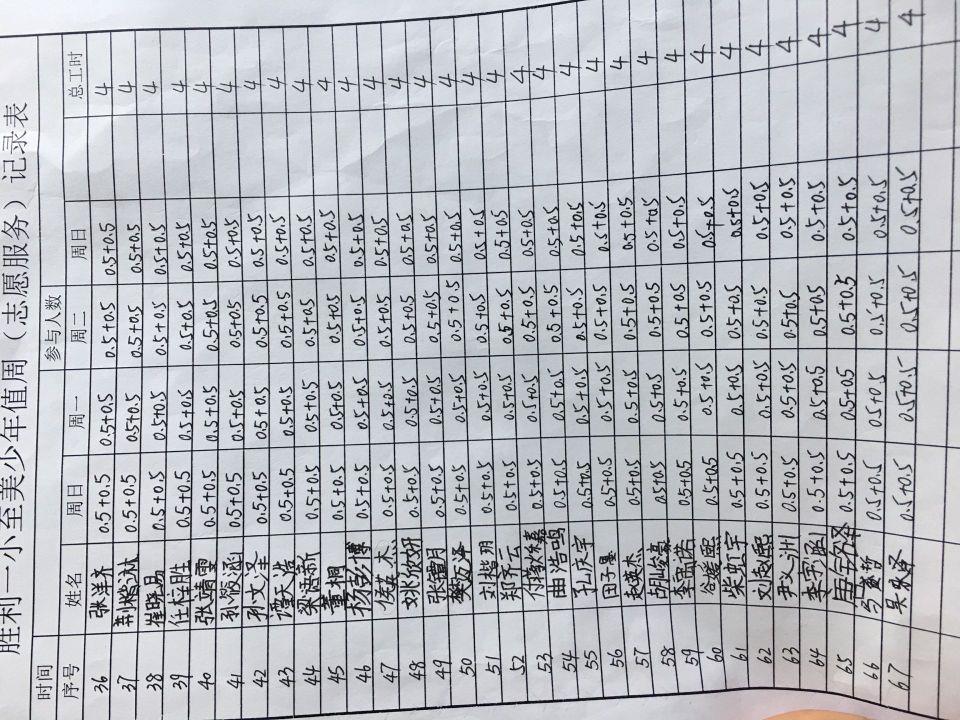 胜利一小至美少年值周（志愿服务）记录表
时间 参与人数
序号 姓名 周日 周一 周二 周日 总工时
36 张洋齐 0.5+0.5 0.5+0.5 0.5+0.5 0.5+0.5 4
37 0.5+0.5 0.5+0.5 0.5+0.5 0.5+0.5 4
38 崔晓易 0.5+0.5 0.5+0.5 0.5+0.5 0.5+0.5 4
39 任柏胜 0.5+0.5 0.5+0.5 0.5+0.5 0.5+0.5 4
40 张靖雯 0.5+0.5 0.5+0.5 0.5+0.5 0.5+0.5 4
41 0.5+0.5 0.5+0.5 0.5+0.5 0.5+0.5 4
42 孙文泽 0.5+0.5 0.5+0.5 0.5+0.5 0.5+0.5 4
43 谭天浩 0.5+0.5 0.5+0.5 0.5+0.5 0.5+0.5 4
44 梁语新 0.5+0.5 0.5+0.5 0.5+0.5 0.5+0.5 4
45 董桐 0.5+0.5 0.5+0.5 0.5+0.5 0.5+0.5 4
46 0.5+0.5 0.5+0.5 0.5+0.5 0.5+0.5 4
47 0.5+0.5 0.5+0.5 0.5+0.5 0.5+0.5 4
48 刘依妍 0.5+0.5 0.5+0.5 0.5+0.5 0.5+0.5 4
49 0.5+0.5 0.5+0.5 0.5+0.5 0.5+0.5 4
50 0.5+0.5 0.5+0.5 0.5+0.5 0.5+0.5 4
51 刘楷玥 0.5+0.5 0.5+0.5 0.5+0.5 0.5+0.5 4
52 郑齐云 0.5+0.5 0.5+0.5 0.5+0.5 0.5+0.5 4
53 0.5+0.5 0.5+0.5 0.5+0.5 0.5+0.5 4
54 曲浩鸣 0.5+0.5 0.5+0.5 0.5+0.5 0.5+0.5 4
55 孔庆宇 0.5+0.5 0.5+0.5 0.5+0.5 0.5+0.5 4
56 田子墨 0.5+0.5 0.5+0.5 0.5+0.5 0.5+0.5 4
57 赵英杰 0.5+0.5 0.5+0.5 0.5+0.5 0.5+0.5 4
58 胡峻豪 0.5+0.5 0.5+0.5 0.5+0.5 0.5+0.5 4
59 李雨诺 0.5+0.5 0.5+0.5 0.5+0.5 0.5+0.5 4
60 0.5+0.5 0.5+0.5 0.5+0.5 0.5+0.5 4
61 柴虹宇 0.5+0.5 0.5+0.5 0.5+0.5 0.5+0.5 4
62 0.5+0.5 0.5+0.5 0.5+0.5 0.5+0.5 4
63 尹义洲 0.5+0.5 0.5+0.5 0.5+0.5 0.5+0.5 4
64 李宇聪 0.5+0.5 0.5+0.5 0.5+0.5 0.5+0.5 4
65 唐宇泽 0.5+0.5 0.5+0.5 0.5+0.5 0.5+0.5 4
66 0.5+0.5 0.5+0.5 0.5+0.5 0.5+0.5 4
67 0.5+0.5 0.5+0.5 0.5+0.5 0.5+0.5 4